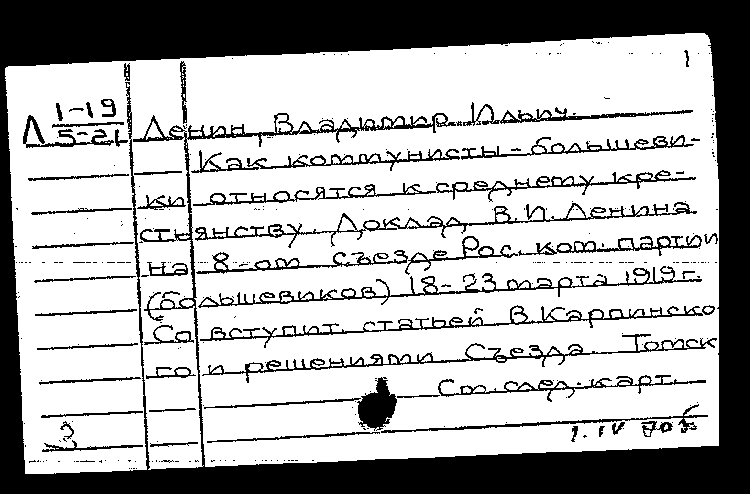 1
Л 1-19
5-21
Ленин, Владимир Ильич.
Как коммунисты-большеви-
ки относятся к среднему кре-
стьянству. Доклад В.И. Ленина
на 8-ом съезде Рос. ком. партии
(большевиков) 18-23 марта 1919 г.
Со вступит. статьей В. Карпинско
го и решениями Съезда. Томск
См. след. карт.
3
1.IV